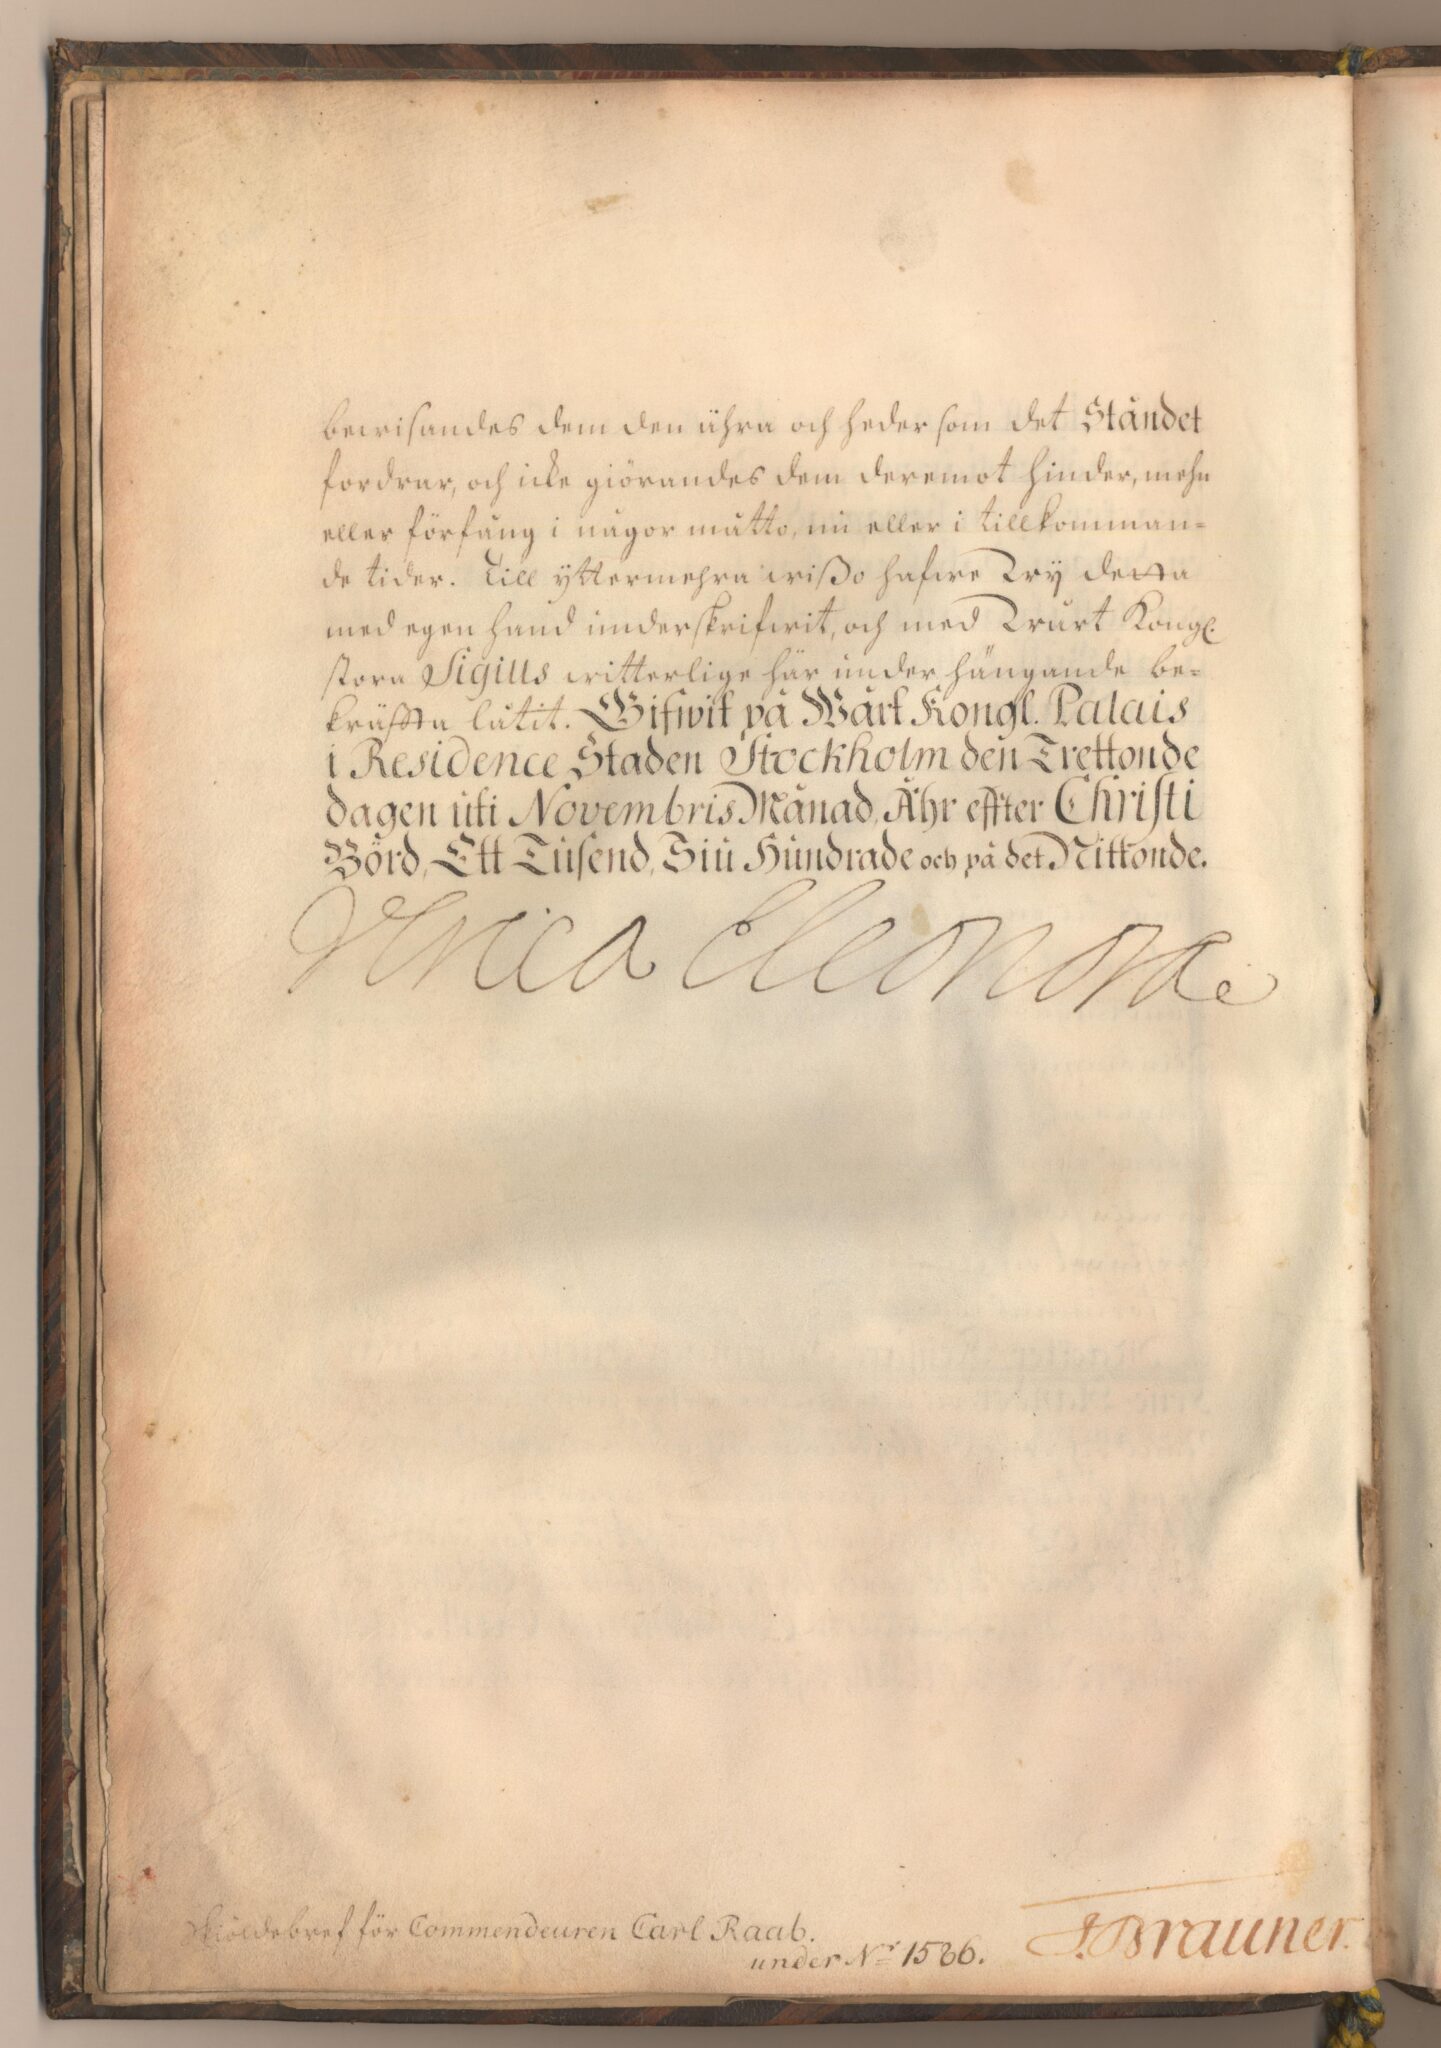 bewisandes dem den ähra och heder som det Ståndet
fordrar, och icke giörandes dem deremot hinder, mehn
eller förfång i någor måtto, nu eller i tillkomman-
de tider. Till yttermehra wißo hafwe Wy detta
med egen hand underskrifwit, och med Wårt Kongl.
stora Sigills witterlige här under hängande be-
kräffta låtit. Gifwit på Wårt Kongl. Palais
i Residence Staden Stockholm den Trettonde
dagen uti Novembris Månad, Åhr effter Christi
Börd, Ett Tusend, Siu Hundrade och på det Nittonde.
Ulrica Eleonora
Skiöldebref för Commendeuren Carl Raab.
under No 1586.
J. Brauner.